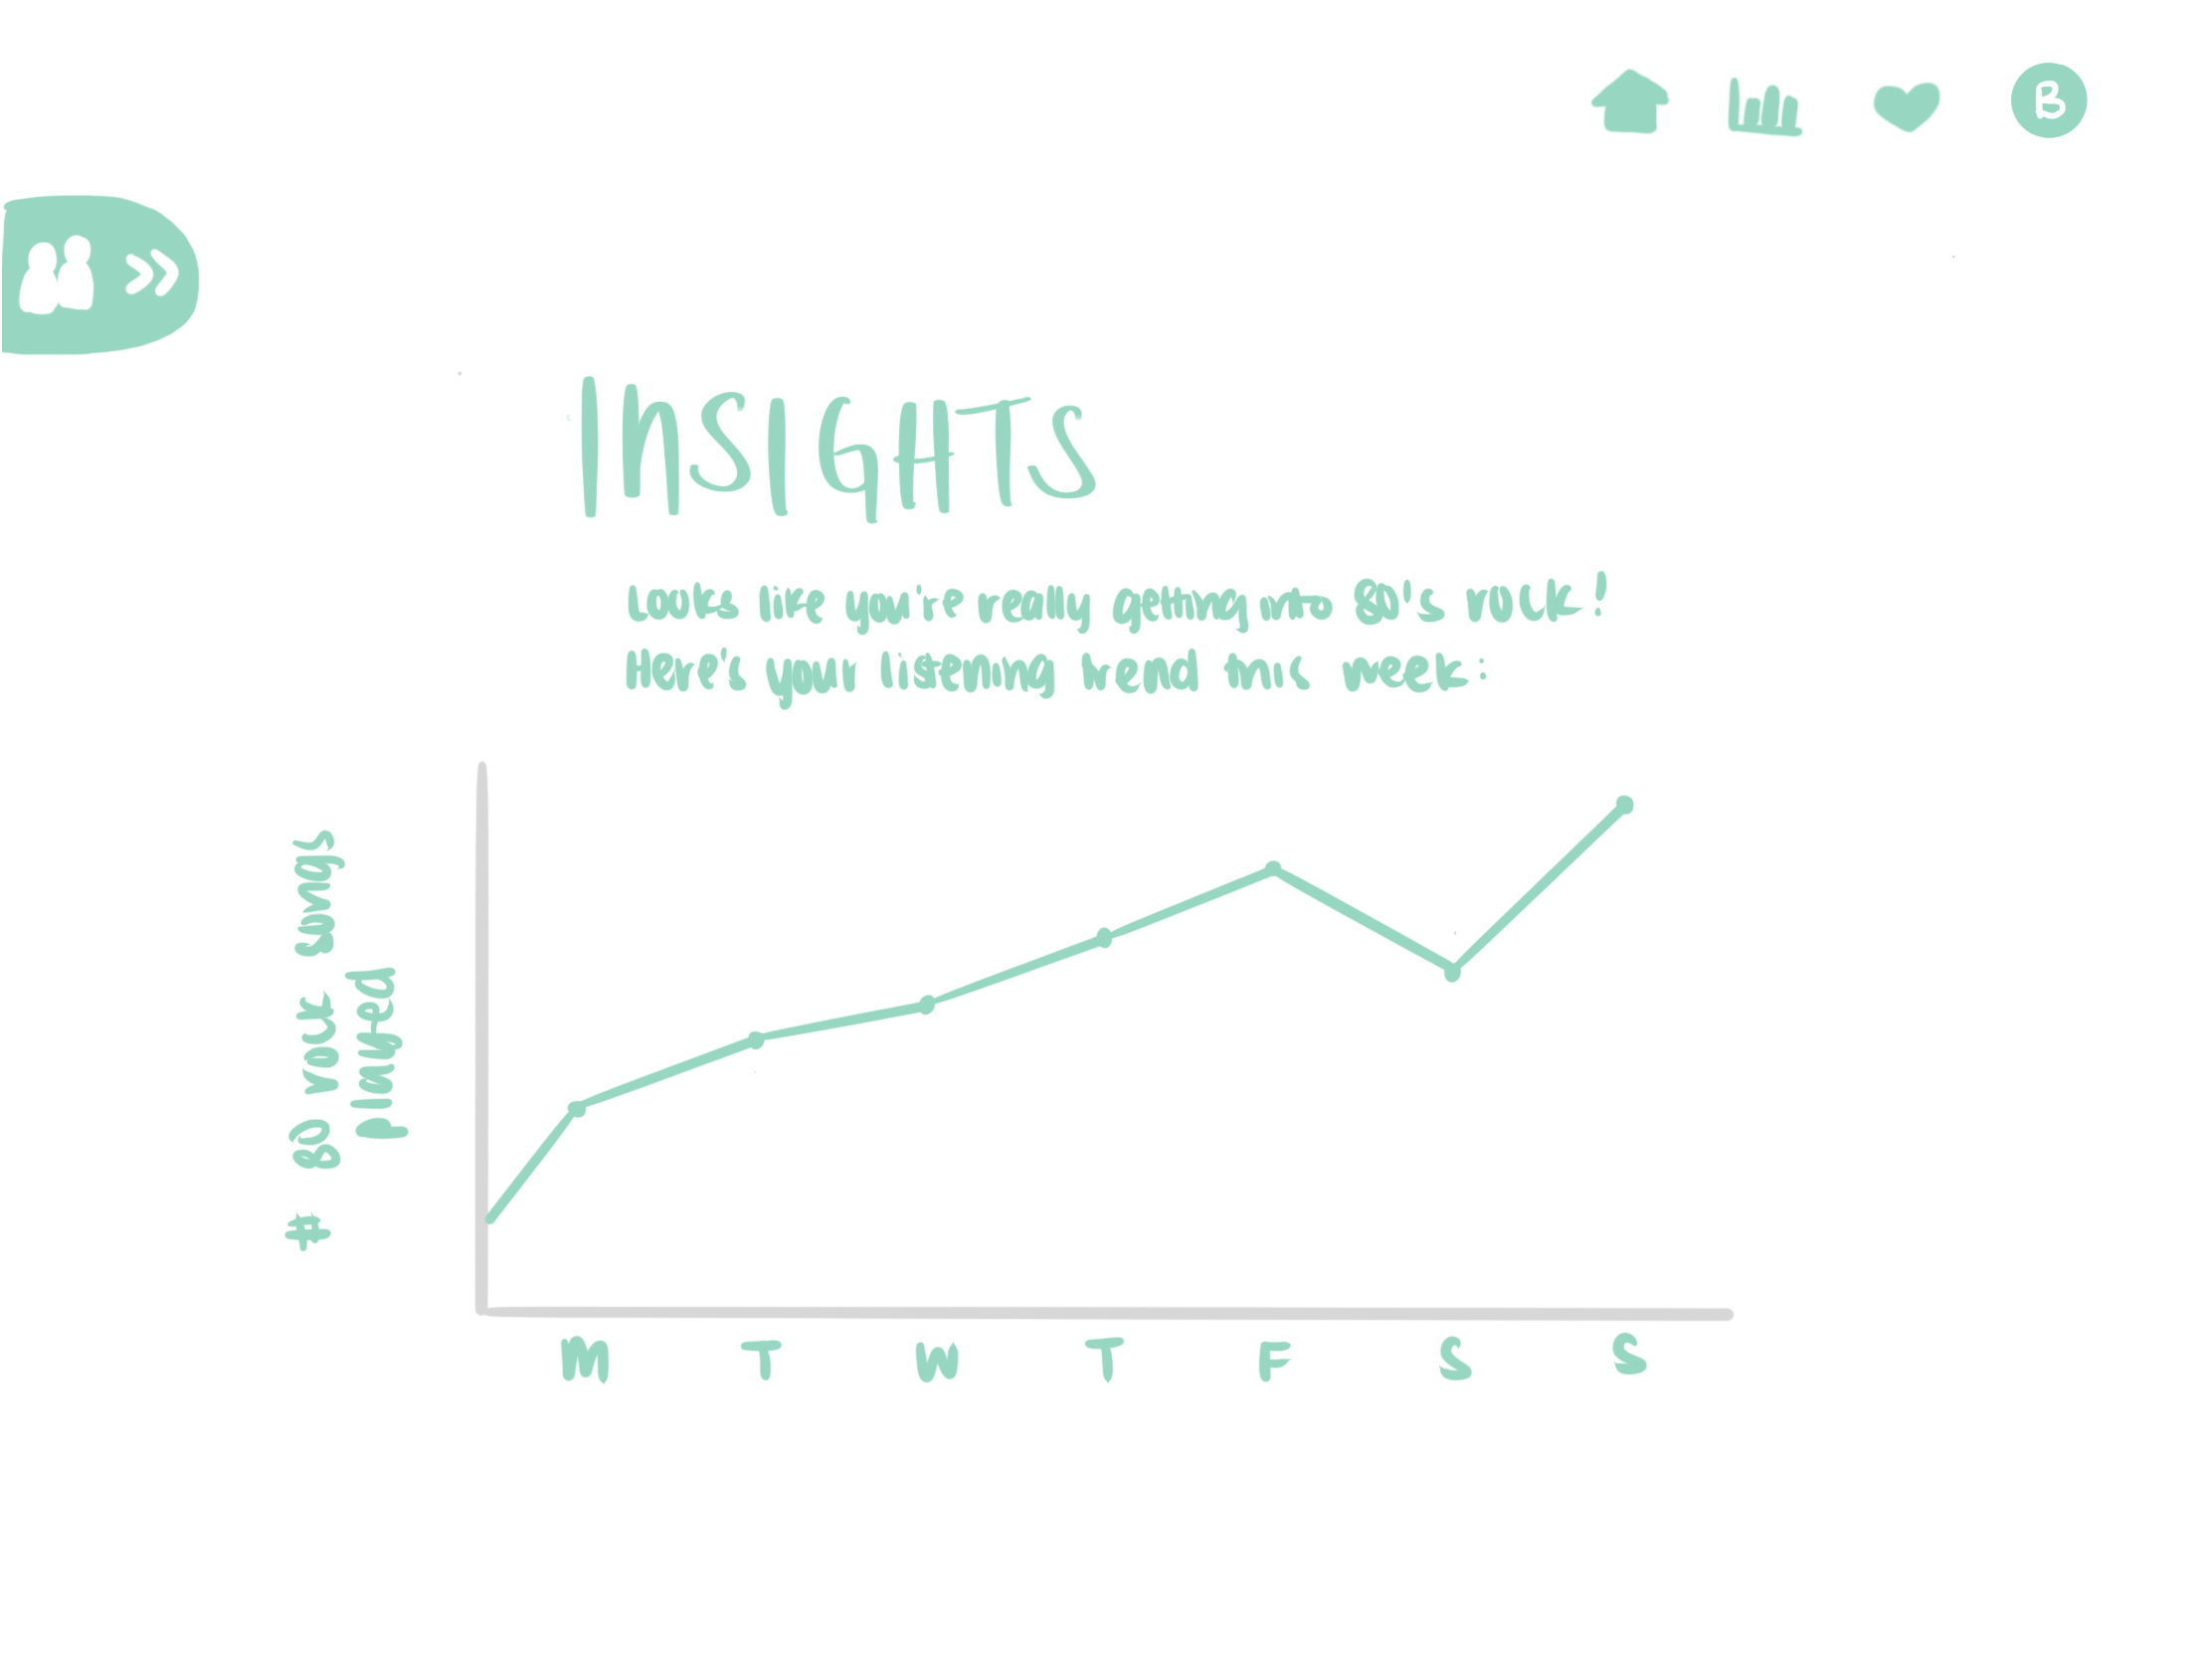 B
INSIGHTS
Looks like you're really getting into 80's rock!
Here's your listening trend this week:
# 80's rock songs
played
M T W T F S S